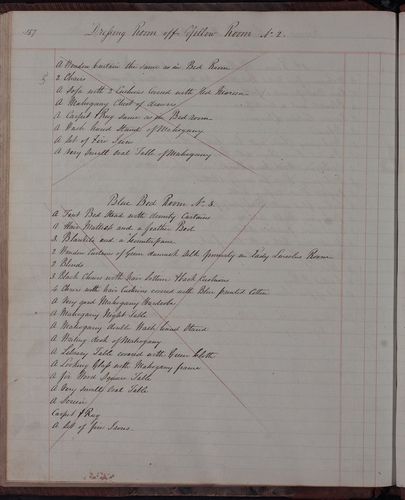 157
Dressing Room off Yellow Room No 2.
A Window Curtain the same as in Bed Room
2 Chairs
A Sofa with 2 Cushions covered with Red Moreen
A Mahogany Chest of drawers
A Carpet & Rug same as in Bedroom
A Wash hand Stand of Mahogany
A Set of Fire Irons
A Very Small Oval Table of Mahogany
Blue Bed Room No 3.
A Tent Bed Stead with dimity Curtains
A Hair Mattress and a feather Bed
3 Blankets and a Counterpane
2 Window Curtains of Green damask Silk formerly in Lady Lincolns Room
2 Blinds
3 Black Chairs with Hair bottom Black Cushions
4 Chairs with Hair Cushions covered with Blue printed Cotton
A Very good Mahogany Wardrobe
A Mahogany Night Table
A Mahogany double Wash hand Stand
A Writing desk of Mahogany
A Library Table covered with Green Cloth
A Looking Glass with Mahogany frame
A fir Wood Square Table
A Very small Oval Table
A Screen
Carpet & Rug
A Set of fire Irons.